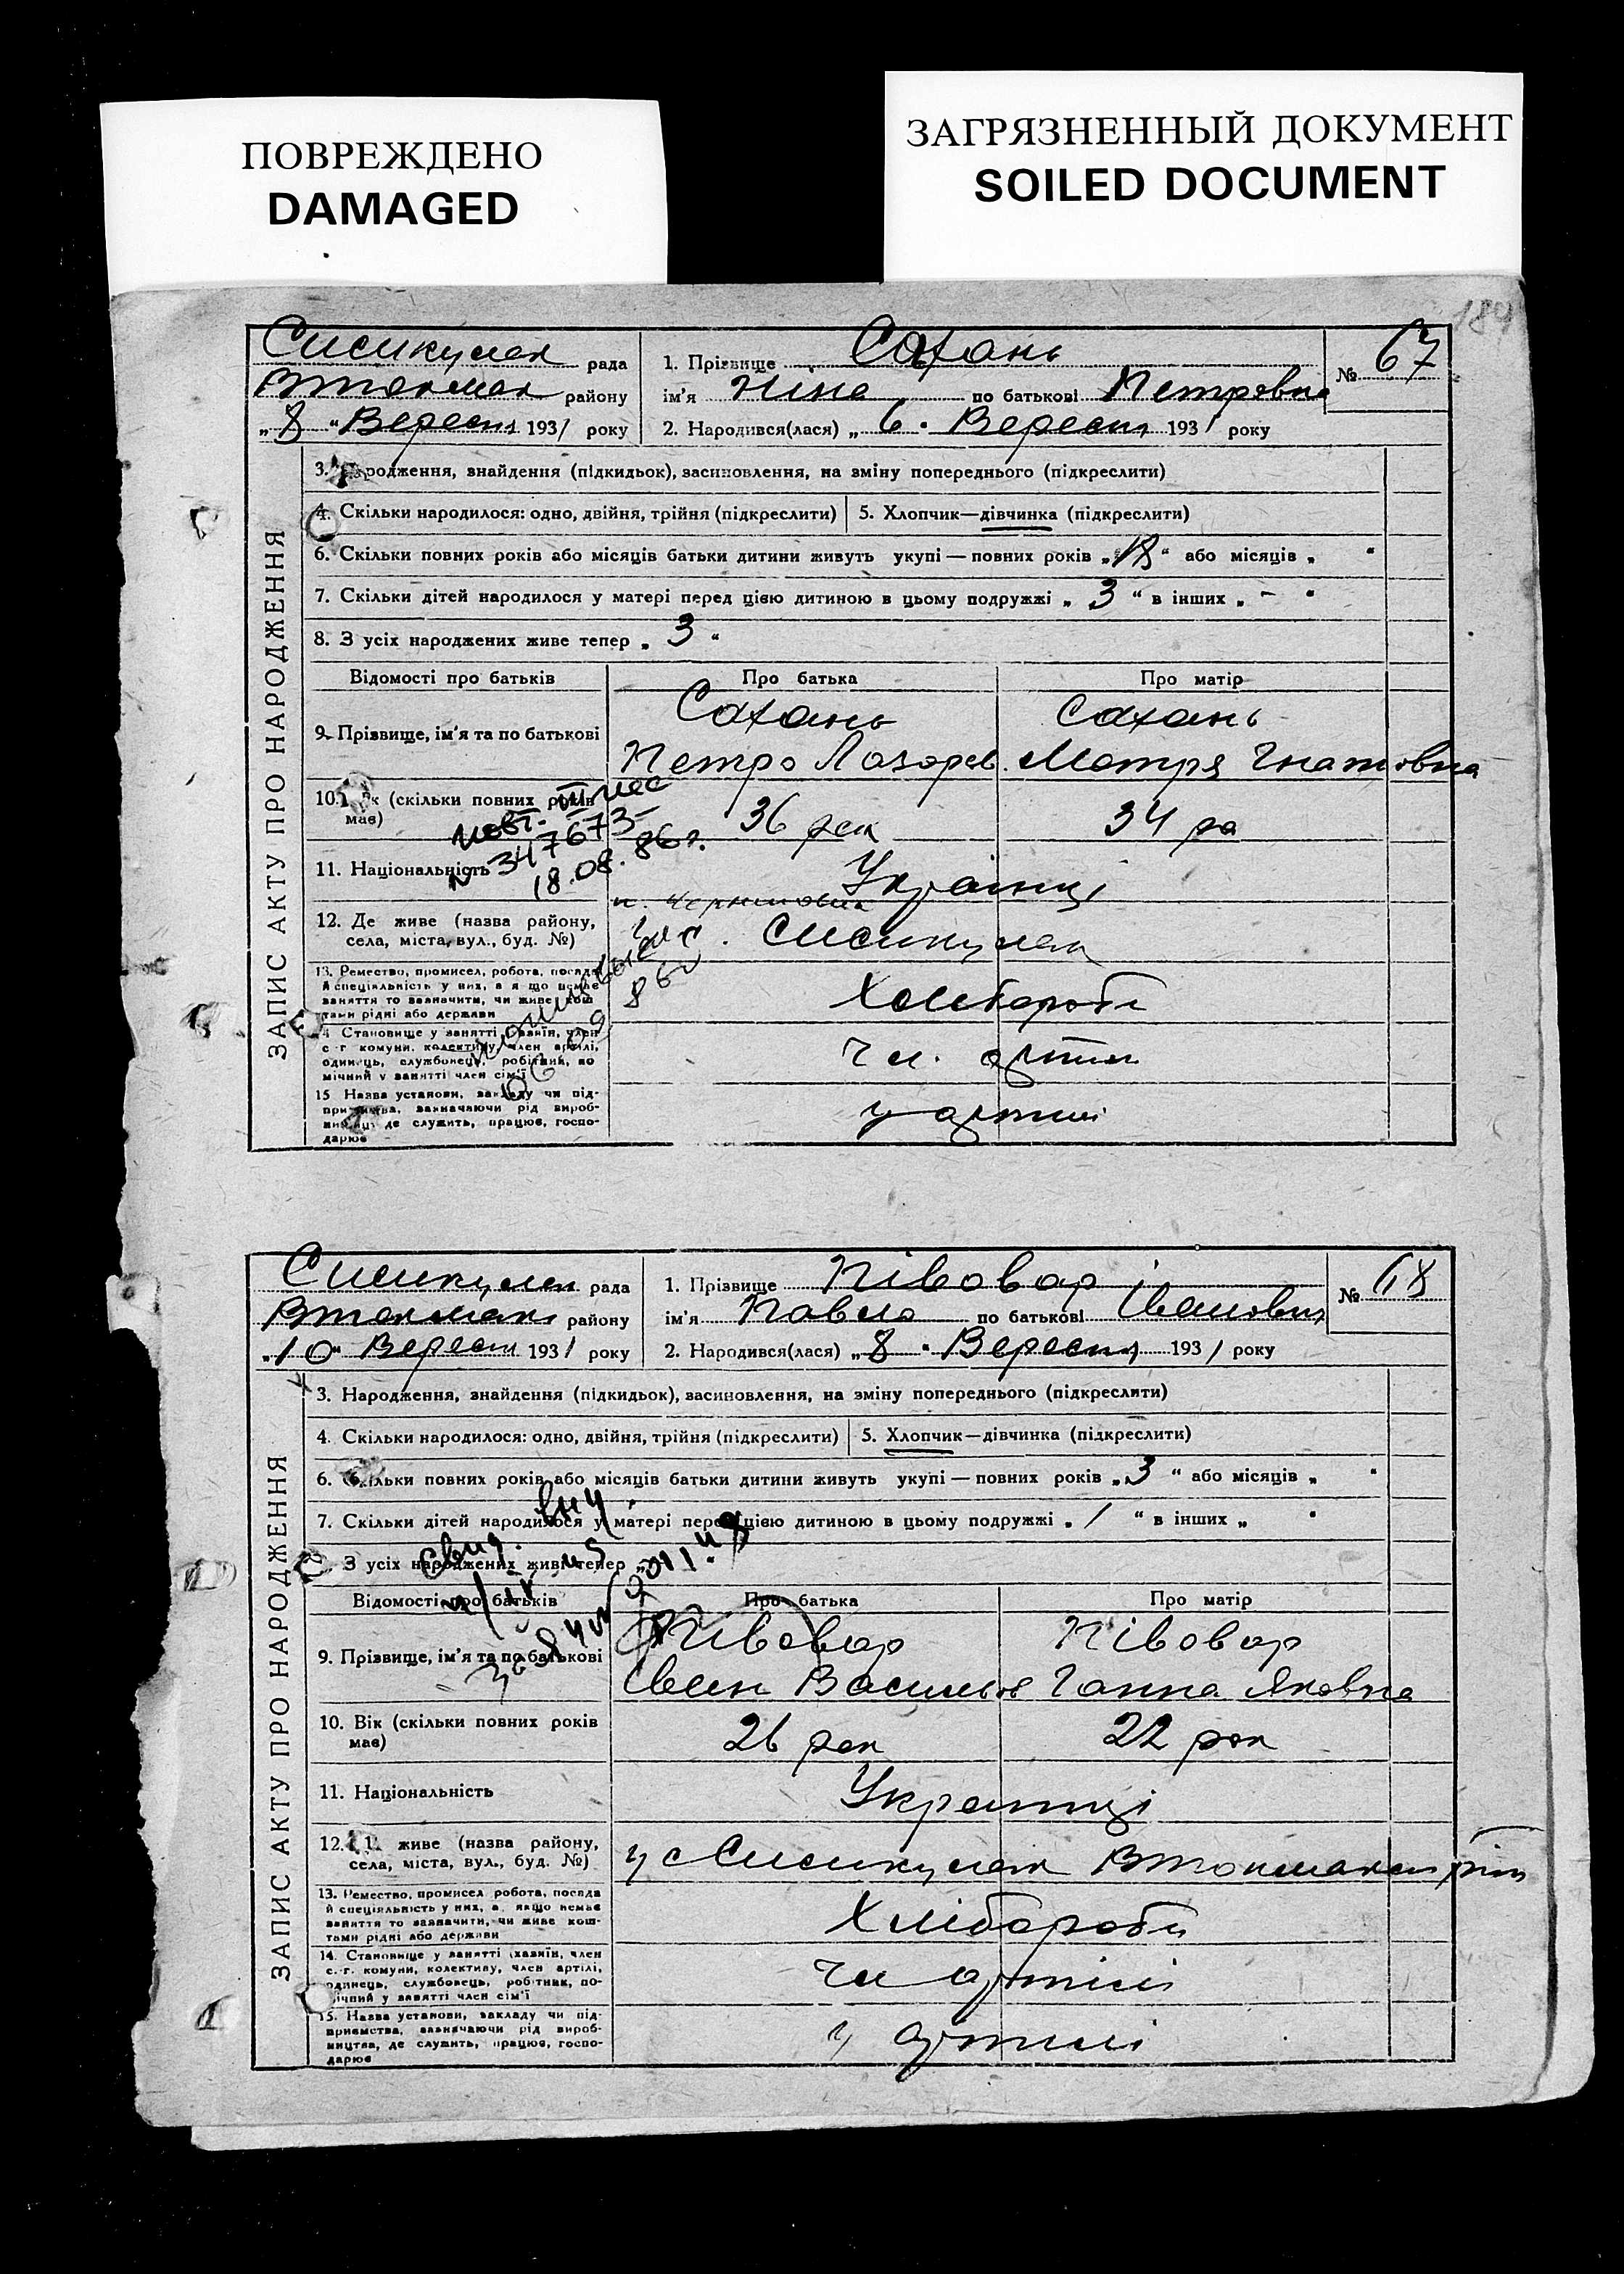 ПОВРЕЖДЕНО
DAMAGED
ЗАГРЯЗНЕННЫЙ ДОКУМЕНТ
SOILED DOCUMENT
ЗАПИС АКТУ ПРО НАРОДЖЕННЯ
рада
району
„8“ Вересня 1931 року
1. Прізвище Сахань
ім'я Ніна по батькові Петровна
2. Народився(лася) „6“ Вересня 1931 року
№ 67
3. Народження, знайдення (підкидьок), засиновлення, на зміну попереднього (підкреслити)
4. Скільки народилося: одно, двійня, трійня (підкреслити)
5. Хлопчик—дівчинка (підкреслити)
6. Скільки повних років або місяців батьки дитини живуть укупі — повних років або місяців „ “
7. Скільки дітей народилося у матері перед цією дитиною в цьому подружжі „ 3 “ в інших „ - “
8. З усіх народжених живе тепер „ 3 “
Відомості про батьків
Про батька
Про матір
9. Прізвище, ім'я та по батькові
Сахань
Петро Лазорев.
Сахань
Мотря Гнатовна
10. Вік (скільки повних років має)
36 рок
34 ро
347673
18.08.86г.
11. Національність
Українці
12. Де живе (назва району,
села, міста, вул., буд. №)
13. Ремество, промисел, робота, посада
й спеціяльність у них, а якщо немає
заняття то зазначити, чи живе кош
тами рідні або держави
Хлібороби
14. Становище у занятті (хазяїн, член
с.-г. комуни, колективу, член артілі,
одинець, службовець, робітник, по
мічний у занятті член сім'ї
чл. артілі
15. Назва установи, закладу чи під-
приємства, зазначаючи рід вироб-
ництва, де служить, працює, госпо-
дарює
у артілі
ЗАПИС АКТУ ПРО НАРОДЖЕННЯ
рада
району
„10“ Вересня 1931 року
1. Прізвище Півовар
ім'я Павло по батькові Іванович
2. Народився(лася) „8“ Вересня 1931 року
№ 68
3. Народження, знайдення (підкидьок), засиновлення, на зміну попереднього (підкреслити)
4. Скільки народилося: одно, двійня, трійня (підкреслити)
5. Хлопчик—дівчинка (підкреслити)
6. Скільки повних років або місяців батьки дитини живуть укупі — повних років „3“ або місяців „ “
7. Скільки дітей народилося у матері перед цією дитиною в цьому подружжі „ 1 “ в інших „ “
З усіх народжених живе тепер
Відомості про батьків
Про батька
Про матір
9. Прізвище, ім'я та по батькові
Півовар
Іван Васильов
Півовар
Ганна Яковна
10. Вік (скільки повних років має)
26 рок
22 рок
11. Національність
Українці
12. живе (назва району,
села, міста, вул., буд. №)
13. Ремество, промисел, робота, посада
й спеціяльність у них, а якщо немає
заняття то зазначити, чи живе кош-
тами рідні або держави
Хлібороби
14. Становище у занятті (хазяїн, член
с.-г. комуни, колективу, член артілі,
одинець, службовець, робітник, по-
мічний у занятті член сім'ї
чл артілі
15. Назва установи, закладу чи під-
приємства, зазначаючи рід вироб-
ництва, де служить, працює, госпо-
дарює
у артілі